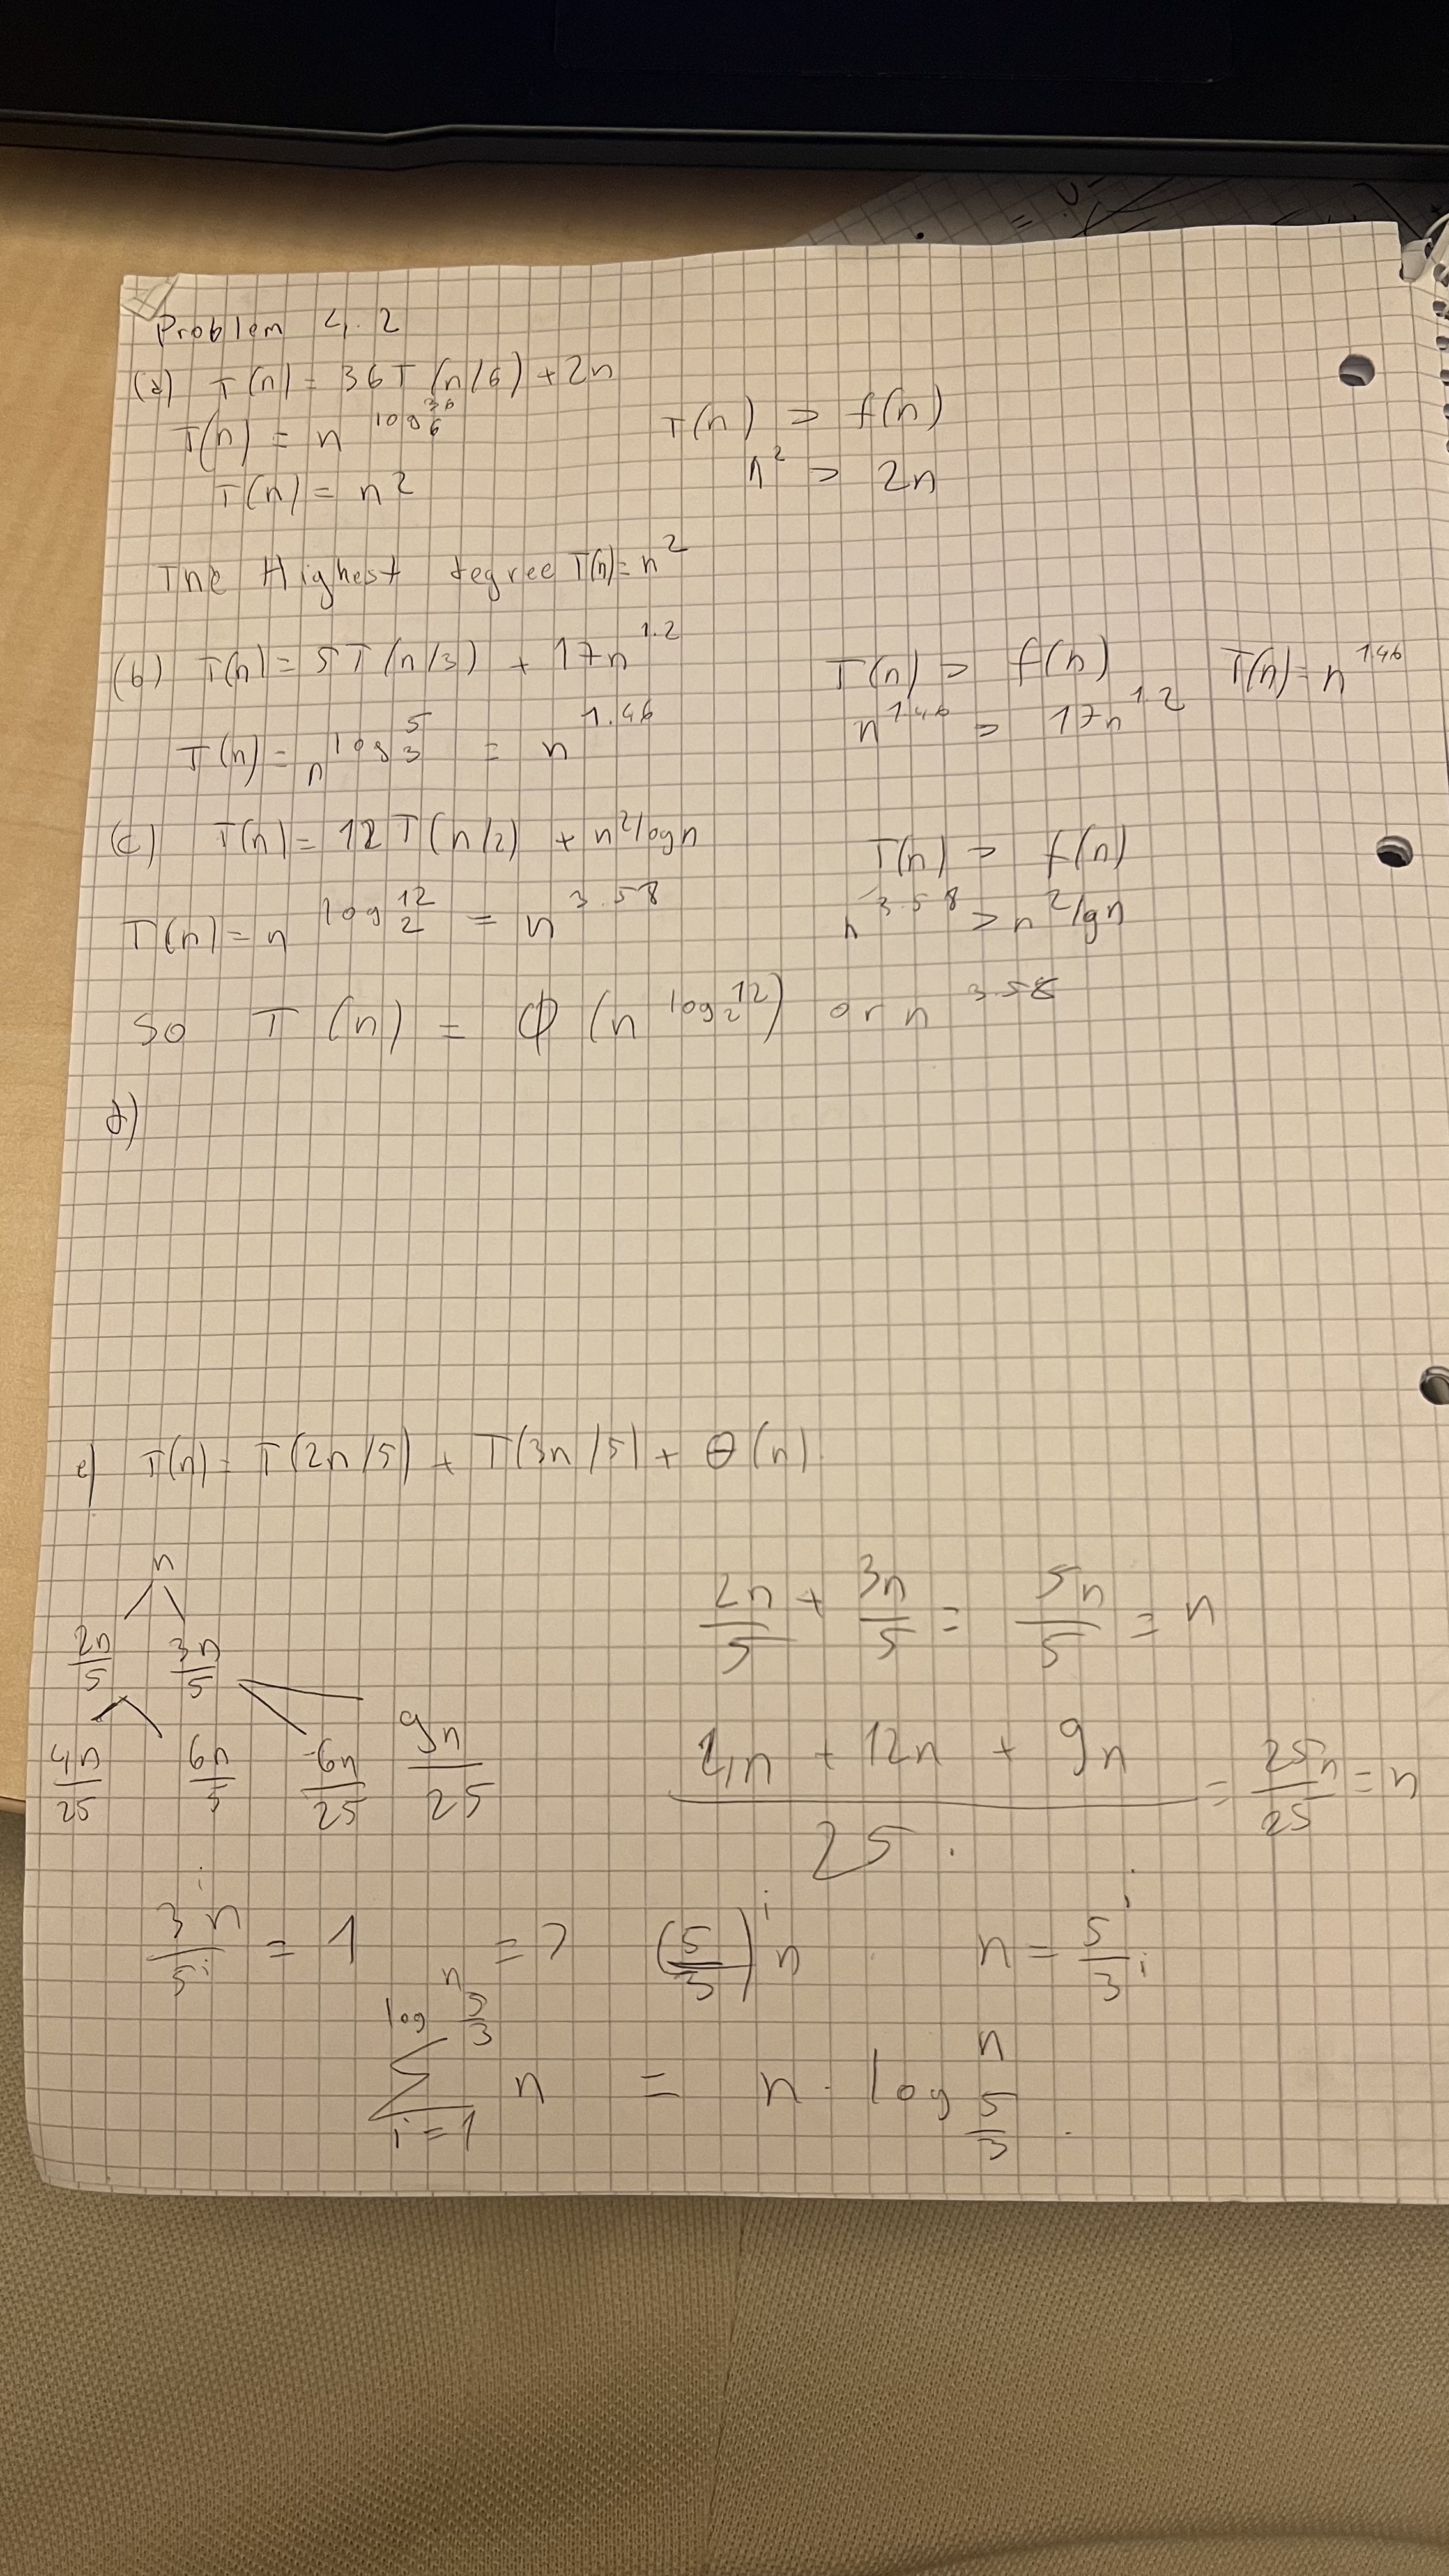 Problem 4.2
(a) T(n) = 36T (n/6) + 2n
T(n) = n^log_6^36
T(n) > f(n)
T(n) = n^2
n^2 > 2n
The Highest degree T(n) = n^2
(b) T(n) = 5T(n/3) + 17n^1.2
T(n) > f(n) T(n) = n^1.46
T(n) = n^log_3^5 = n^1.46
n^1.46 > 17n^1.2
(c) T(n) = 12T(n/2) + n^2 logn
T(n) > f(n)
T(n) = n^log_2^12 = n^3.58
n^3.58 > n^2 lgn
So T(n) = Φ (n^log_2^12) or n^3.58
d)
e) T(n) = T(2n/5) + T(3n/5) + Θ(n)
n
2n/5 3n/5
2n/5 + 3n/5 = 5n/5 = n
4n/25 6n/5 6n/25 9n/25
(4n + 12n + 9n)/25 = 25n/25 = n
3^i n/5^i = 1 => (5/3)^i n n = 5^i/3^i
log_5/3^n
Σ n = n · log_5/3^n
i=1